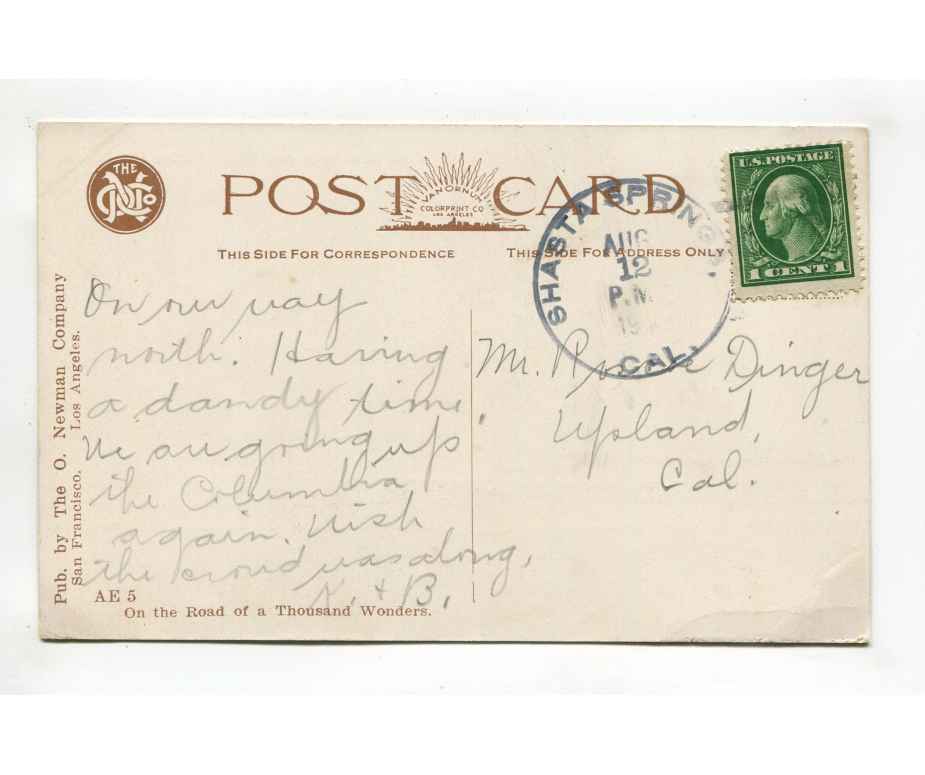 THE
NCo
POST CARD
VAN ORNUM
COLORPRINT CO
LOS ANGELES
THIS SIDE FOR CORRESPONDENCE
THIS SIDE FOR ADDRESS ONLY
U.S. POSTAGE
1 CENT 1
SHASTA SPRINGS
AUG
12
P.M.
CAL.
Pub. by The O. Newman Company
San Francisco. Los Angeles.
On our way
north. Having
a dandy time.
We are going up
the Columbia
again. Wish
the crowd was along,
K. & B.
Mr. Dinger
Upland,
Cal.
AE 5
On the Road of a Thousand Wonders.